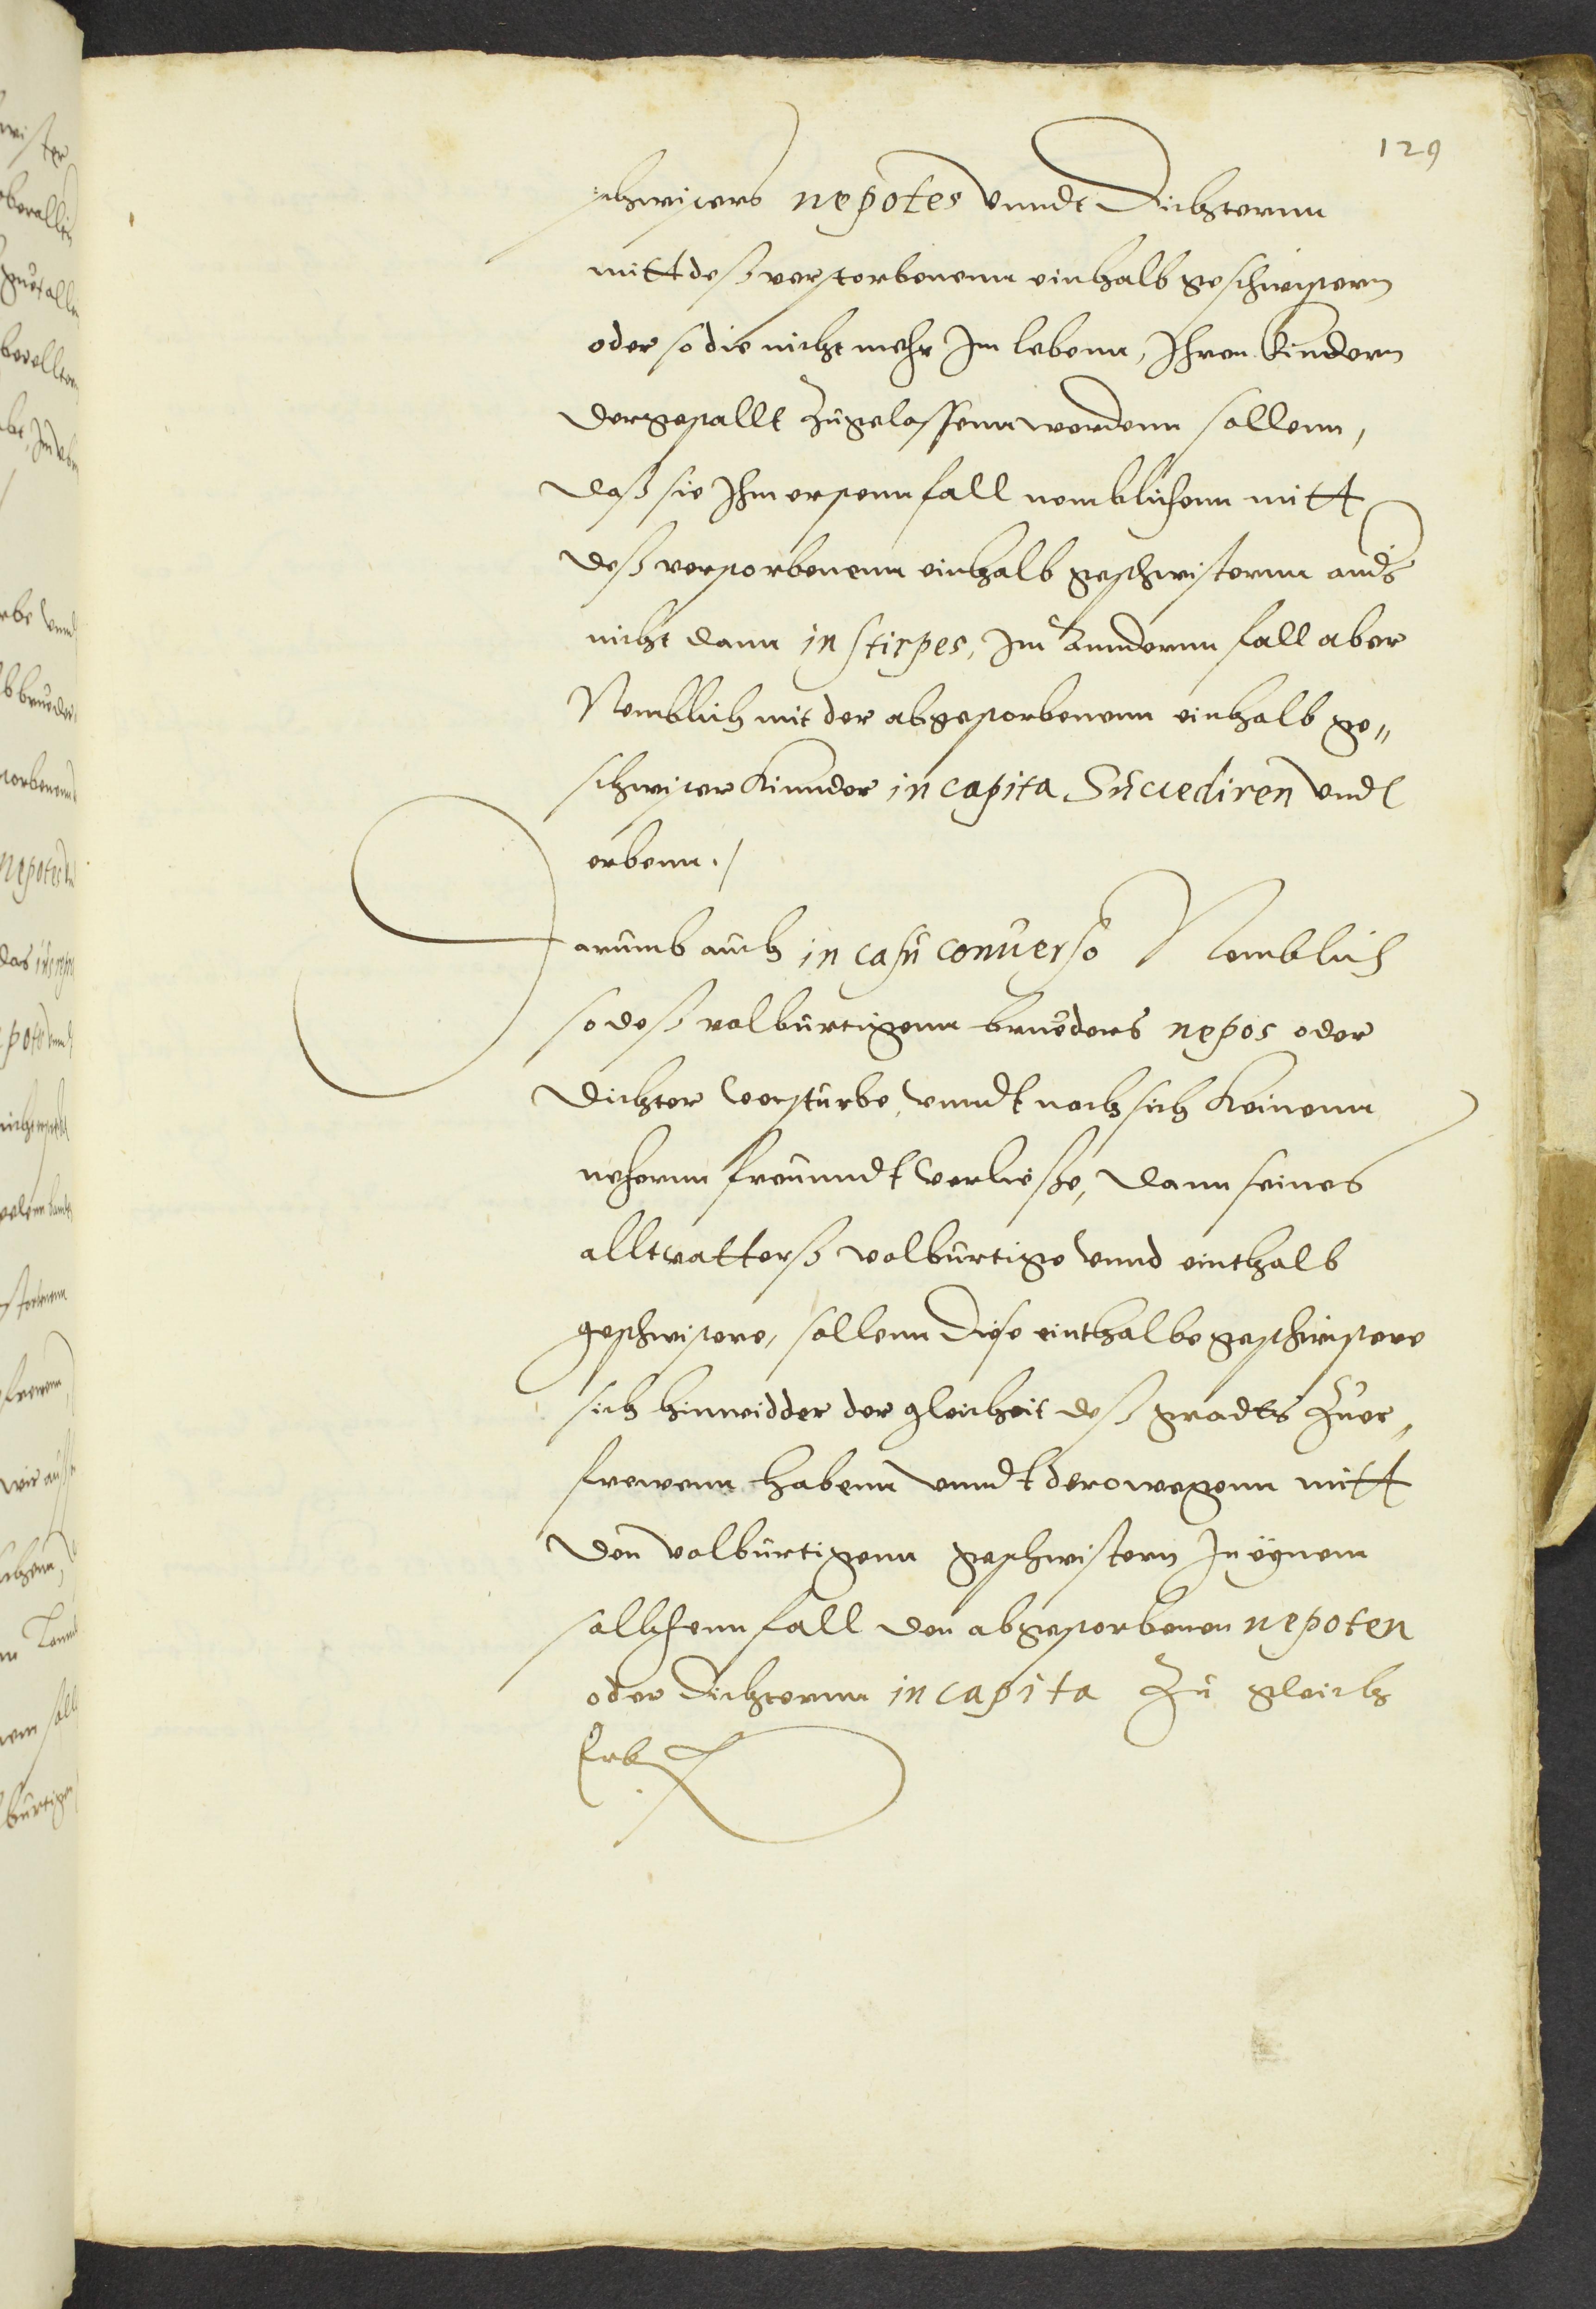 129
schwisters nepotes vnndt Dichternn
mitt deß verstorbenenn einhalb geschwistern
oder so die nicht mehr Im lebenn, Ihren Kindern
dergestallt zugelassenn werdenn sollenn,
daß sie Ihm erstenn fall nemblichenn mitt
deß verstorbenenn einhalb geschwisternn anders
nicht dann in stirpes, Im Anndernn fall aber
Nemblich mit der abgestorbenenn einhalb ge„
schwister Kinnder in capita Succediren vnd
erbenn./
Darumb auch in casu conuerso Nemblich
so deß volbürtigenn bruders nepos oder
Dichter verstürbe, vnndt nach sich Keinenn
nehernn freunndt verließe, dann seines
alltvatterß volbürtige vnnd einthalb
geschwistere, sollenn diese einthalbe geschwistere
sich hinwidder der gleicheit deß gradts zuer„
frewenn habenn vnndt derowegenn mitt
den volbürtigenn geschwistern In eynem
sollchenn fall den abgestorbenen nepoten
oder Dichternn in capita zu gleich
Erben